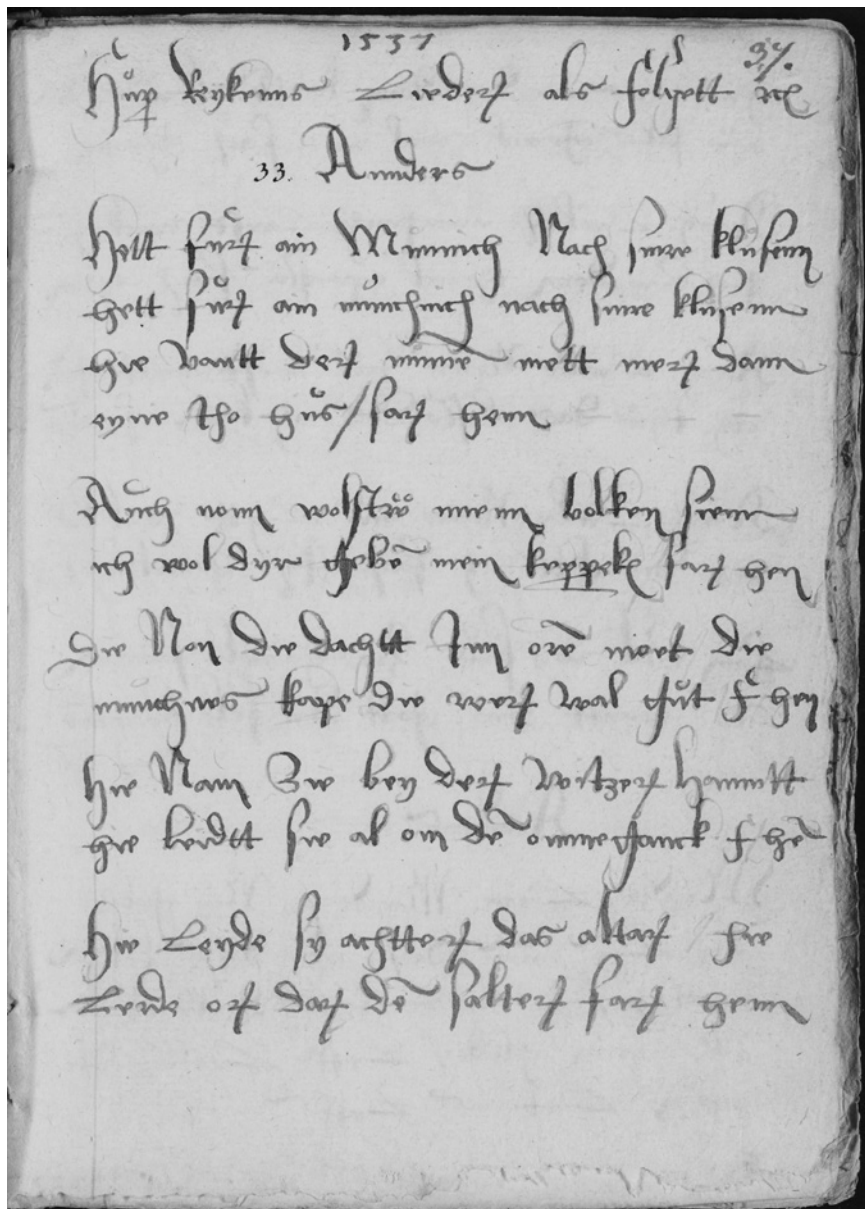 1537
37.
Hüpsz Reykenns Liederſ als folgett etc
33. Annders
Hett fürſ ain Münnich Nach sinre klüsenn
hett fürſ ain münchnich nach sinre klusenn
hie vantt derſ nünne nett merſ dann
eyne tho hüs / farſ henn
Auch nonn wolstw minenn bolken sienn
ich wol dyr geben mein keppeken farſ hen
Die Non die dachtt Inn oren moet die
münchnes kape die werſ wal gut F hen
Hie Nam Sie bey derſ Witzerſ hanntt
hie leidtt sie al om den ommeganck F hen
Hie Leyde sy achtterſ das altarſ / hie
Leerde orſ darſ den salterſ farſ henn